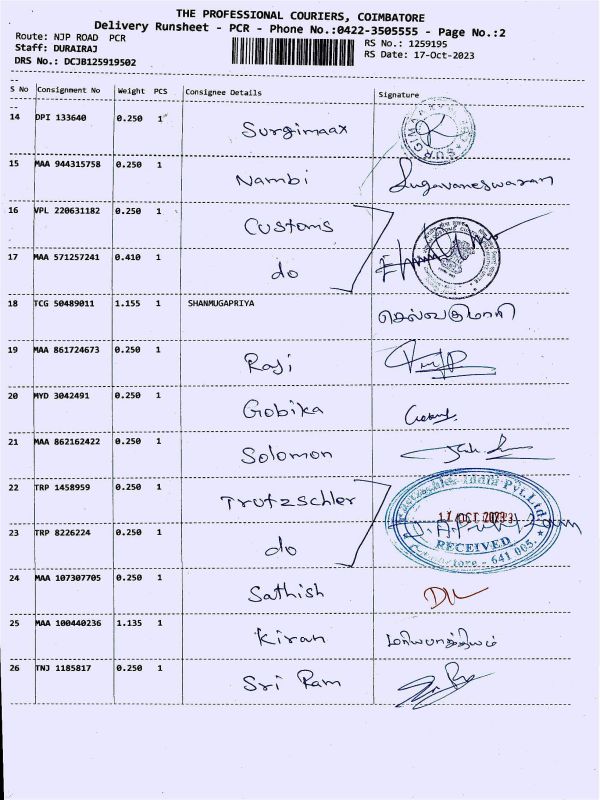 THE PROFESSIONAL COURIERS, COIMBATORE
Delivery Runsheet - PCR - Phone No.:0422-3505555 - Page No.:2
Route: NJP ROAD PCR
RS No.: 1259195
Staff: DURAIRAJ
RS Date: 17-Oct-2023
DRS No.: DCJB125919502
S No Consignment No Weight PCS Consignee Details Signature
14 DPI 133640 0.250 1 Surgimaax
15 MAA 944315758 0.250 1 Nambi Sugavaneswaran
16 VPL 220631182 0.250 1 Customs
17 MAA 571257241 0.410 1 do
18 TCG 50489011 1.155 1 SHANMUGAPRIYA செல்வகுமாரி
19 MAA 861724673 0.250 1 Raji
20 MYD 3042491 0.250 1 Gobika
21 MAA 862162422 0.250 1 Solomon
22 TRP 1458959 0.250 1 Trutzschler
23 TRP 8226224 0.250 1 do
RECEIVED
641 005.
24 MAA 107307705 0.250 1 Sathish
25 MAA 100440236 1.135 1 Kiran
26 TNJ 1185817 0.250 1 Sri Ram